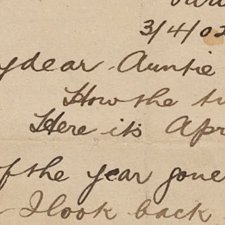 3/4/02
dear Auntie
How the
Here it's Apr
of the year gone
I look back